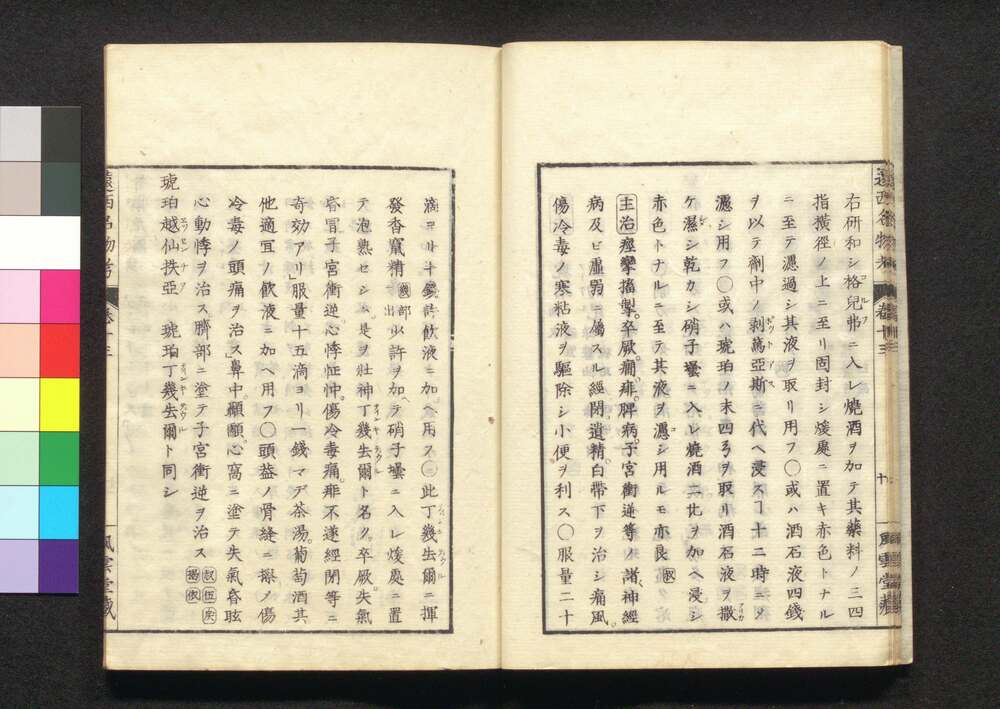 右研和シ格兒弗ニ入レ燒酒ヲ加テ其藥料ノ三四
指橫徑ノ上ニ至リ固封シ煖處ニ置キ赤色トナル
ニ至テ濾過シ其液ヲ取リ用フ〇或ハ酒石液四錢
ヲ以テ劑中ノ剥篤亞斯ニ代ヘ浸スヿ十二時ニメ
濾シ用フ〇或ハ琥珀ノ末四弓ヲ取リ酒石液ヲ撒
ケ濕シ乾カシ硝子壜ニ入レ燒酒二比ヲ加ヘ浸シ
赤色トナルニ至テ其液ヲ濾シ用ルモ亦良
主治痙攣搐掣卒厥癇痱脾病子宮衝逆等ノ諸神經
病及ビ虛弱ニ屬スル經閉遺精白帶下ヲ治シ痛風
傷冷毒ノ寒粘液ヲ驅除シ小便ヲ利ス〇服量二十
遠西名物考 卷十三 風雲堂藏
滴ヨリ十錢許飲液ニ加ヘ用フ〇此丁幾去爾ニ揮
發香竄精少許ヲ加ヘテ硝子壜ニ入レ煖處ニ置
テ泡熟セシム是ヲ壯神丁幾去爾ト名ク卒厥失氣
昏冒子宮衝逆心悸怔忡傷冷毒痛痱不遂經閉等ニ
奇効アリ」服量十五滴ヨリ一錢マデ茶湯葡萄酒其
他適宜ノ飲液ニ加ヘ用フ〇頭蓋ノ骨縫ニ擦ノ傷
冷毒ノ頭痛ヲ治ス」鼻中顳顬心窩ニ塗テ失氣昏眩
心動悸ヲ治ス臍部ニ塗テ子宮衝逆ヲ治ス
琥珀越仙扶亞 琥珀丁幾去爾ト同シ
遠西名物考 卷十三 風雲堂藏